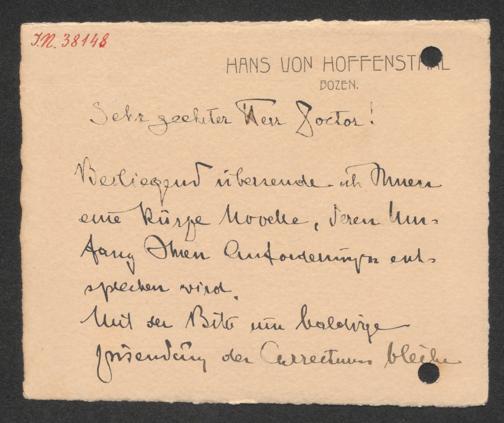 I.N. 38148
HANS VON HOFFENSTHAL
BOZEN.
Sehr geehrter Herr Doctor!
Beiliegend übersende ich Ihnen
eine kurze Novelle, deren Um-
fang Ihren Anforderungen ent-
sprechen wird.
Mit der Bitte um baldige
Zusendung der Correcturen bleibe